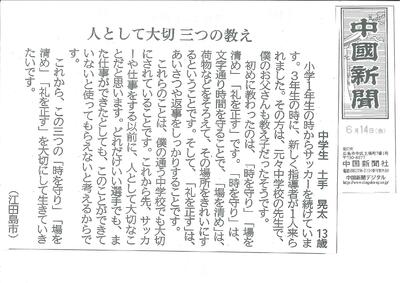 人として大切 三つの教え
中学生 土手 晃太 13歳
小学1年生の時からサッカーを続けていま
す。3年生の時に、新しく指導者が1人来ら
れました。その方は、元々中学校の先生で、
僕のお父さんも教え子だったそうです。
初めに教わったのは、「時を守り」「場を
清め」「礼を正す」です。「時を守り」は、
文字通り時間を守ることで、「場を清め」は、
荷物などをそろえて、その場所をきれいにす
るということです。そして、「礼を正す」は、
あいさつや返事をしっかりすることです。
これらのことは、僕の通う中学校でも大切
にされていることです。これから先、サッカ
ーや仕事をする以前に、人として大切なこ
とだと思います。どれだけいい選手でも、ま
た仕事ができたとしても、このことができて
いないと使ってもらえないと考えるからで
す。
これから、この三つの「時を守り」「場を
清め」「礼を正す」を大切にして生きていき
たいです。
(江田島市)
中國新聞
6月14日(金)
発行所
中国新聞社
中国新聞デジタル